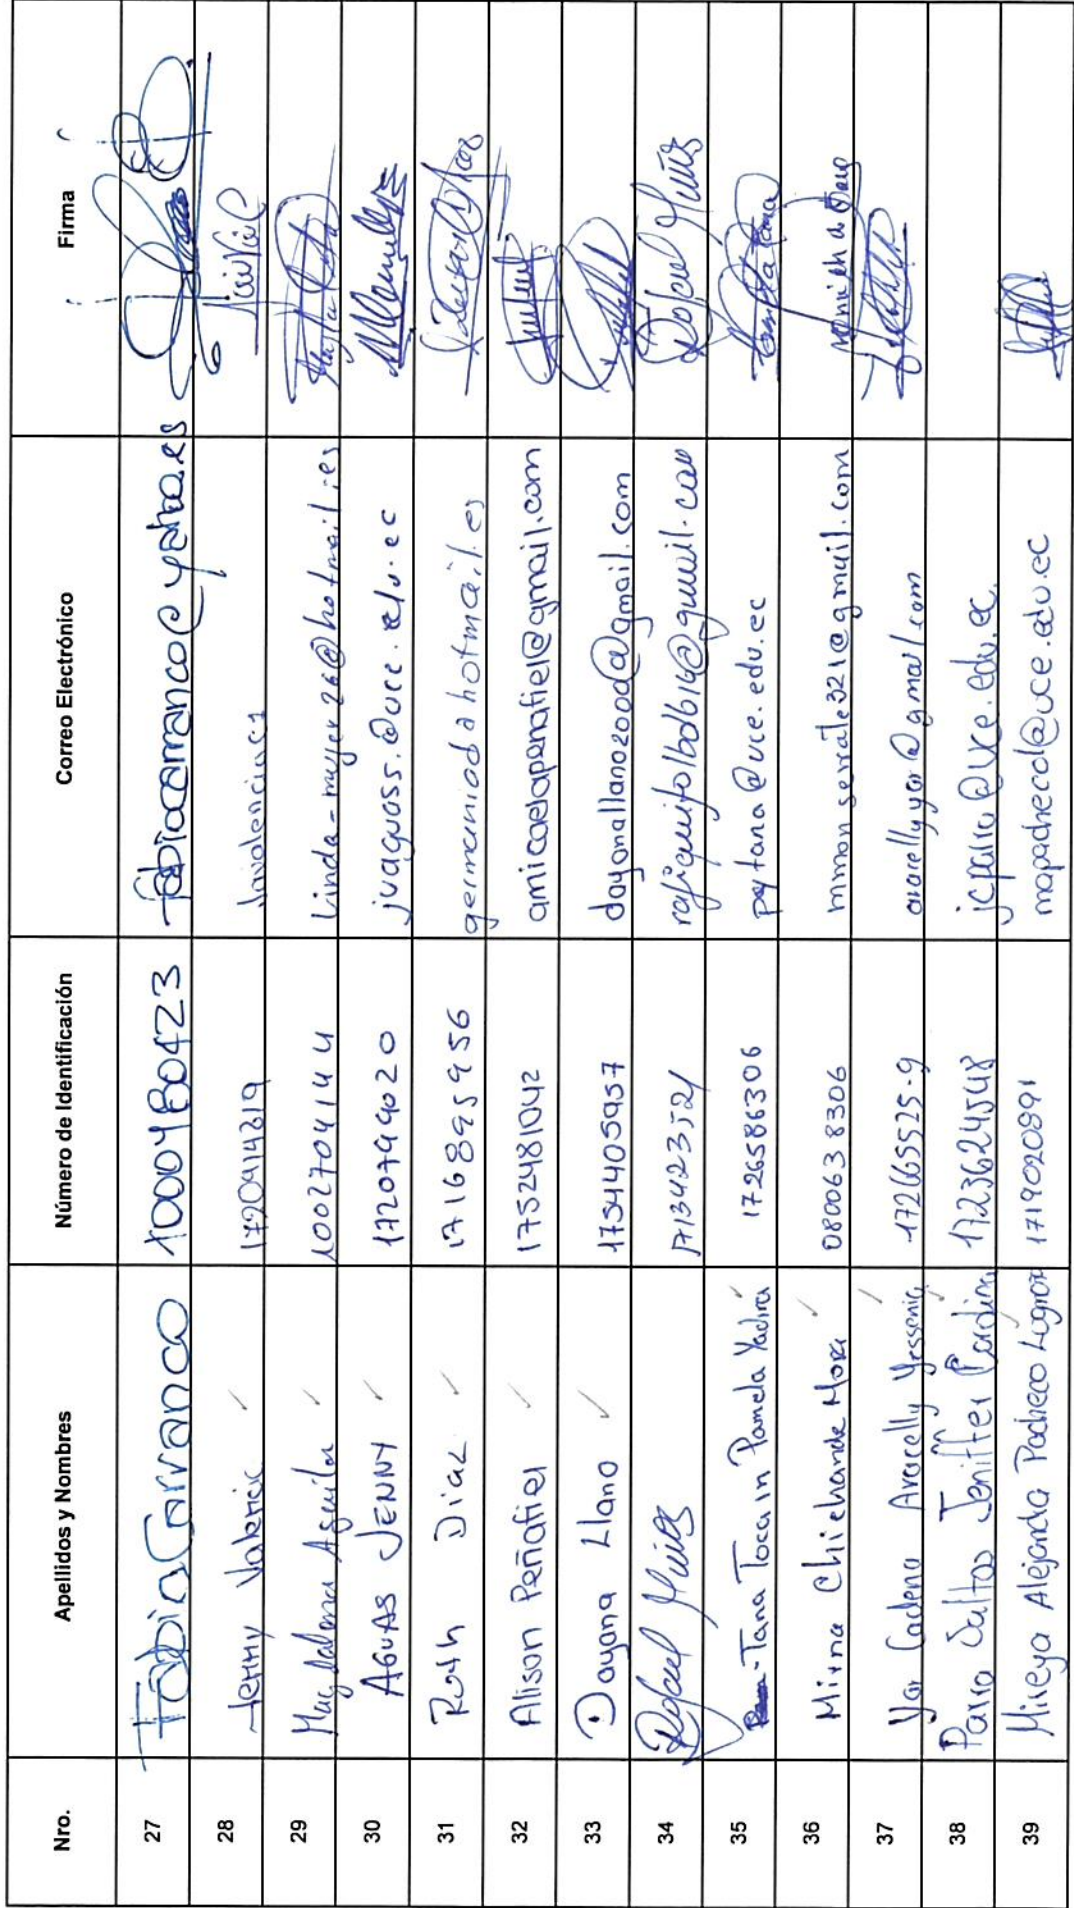 Nro. Apellidos y Nombres Número de Identificación Correo Electrónico Firma
27 Fabio Carranco 1000480423 fabiocarranco@yahoo.es
28 Jenny Valencia 1720414819 Jnvalencia1
29 Magdalena Aguilar 1002704144 Linda-mujer26@hotmail.es
30 AGUAS JENNY 1720799020 juaguass.@uce.edu.ec
31 Ruth Diaz 1716895956 germaniad a hotmail.es
32 Alison Peñafiel 1752481042 amicaelapenafiel@gmail.com
33 Dayana Llano 1754405957 dayanallano2000@gmail.com
34 Rafael 1713423521
35 Tana Tocain Pamela Yadira 1726586306 pytana@uce.edu.ec
36 Mirna Chichande Mora 0800638306
37 Yar Cadena Aracelly Yessenia 172665525-9 aracellyyar@gmail.com
38 Parra Saltos Jeniffer Carolina 1723624548 jcparra@uce.edu.ec
39 Mireya Alejandra Pacheco Logroño 1719020891 mapachecol@uce.edu.ec